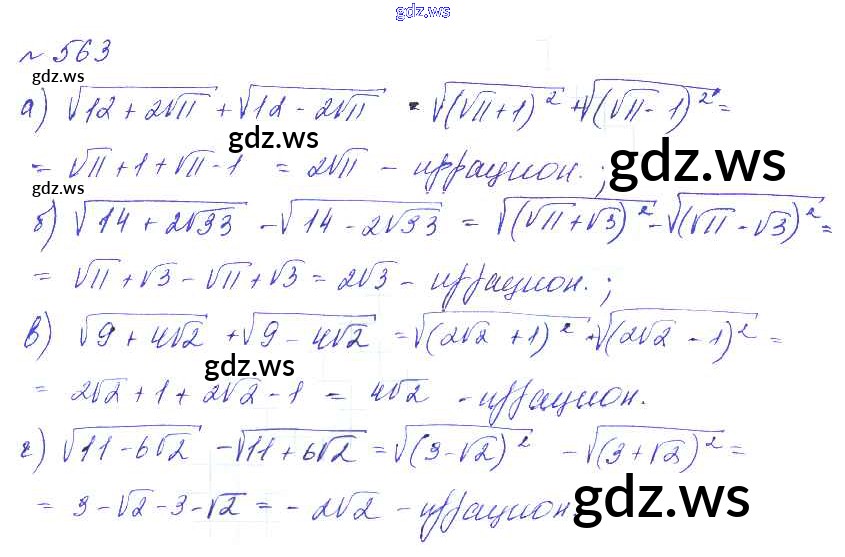 gdz.ws
№ 563
gdz.ws
а) √(12 + 2√11) + √(12 - 2√11) = √((√11 + 1)²) + √((√11 - 1)²) =
gdz.ws
gdz.ws
= √11 + 1 + √11 - 1 = 2√11 - иррацион.;
gdz.ws
б) √(14 + 2√33) - √(14 - 2√33) = √((√11 + √3)²) - √((√11 - √3)²) =
= √11 + √3 - √11 + √3 = 2√3 - иррацион.;
в) √(9 + 4√2) + √(9 - 4√2) = √((2√2 + 1)²) + √((2√2 - 1)²) =
gdz.ws
= 2√2 + 1 + 2√2 - 1 = 4√2 - иррацион.
г) √(11 - 6√2) - √(11 + 6√2) = √((3 - √2)²) - √((3 + √2)²) =
= 3 - √2 - 3 - √2 = - 2√2 - иррацион
gdz.ws